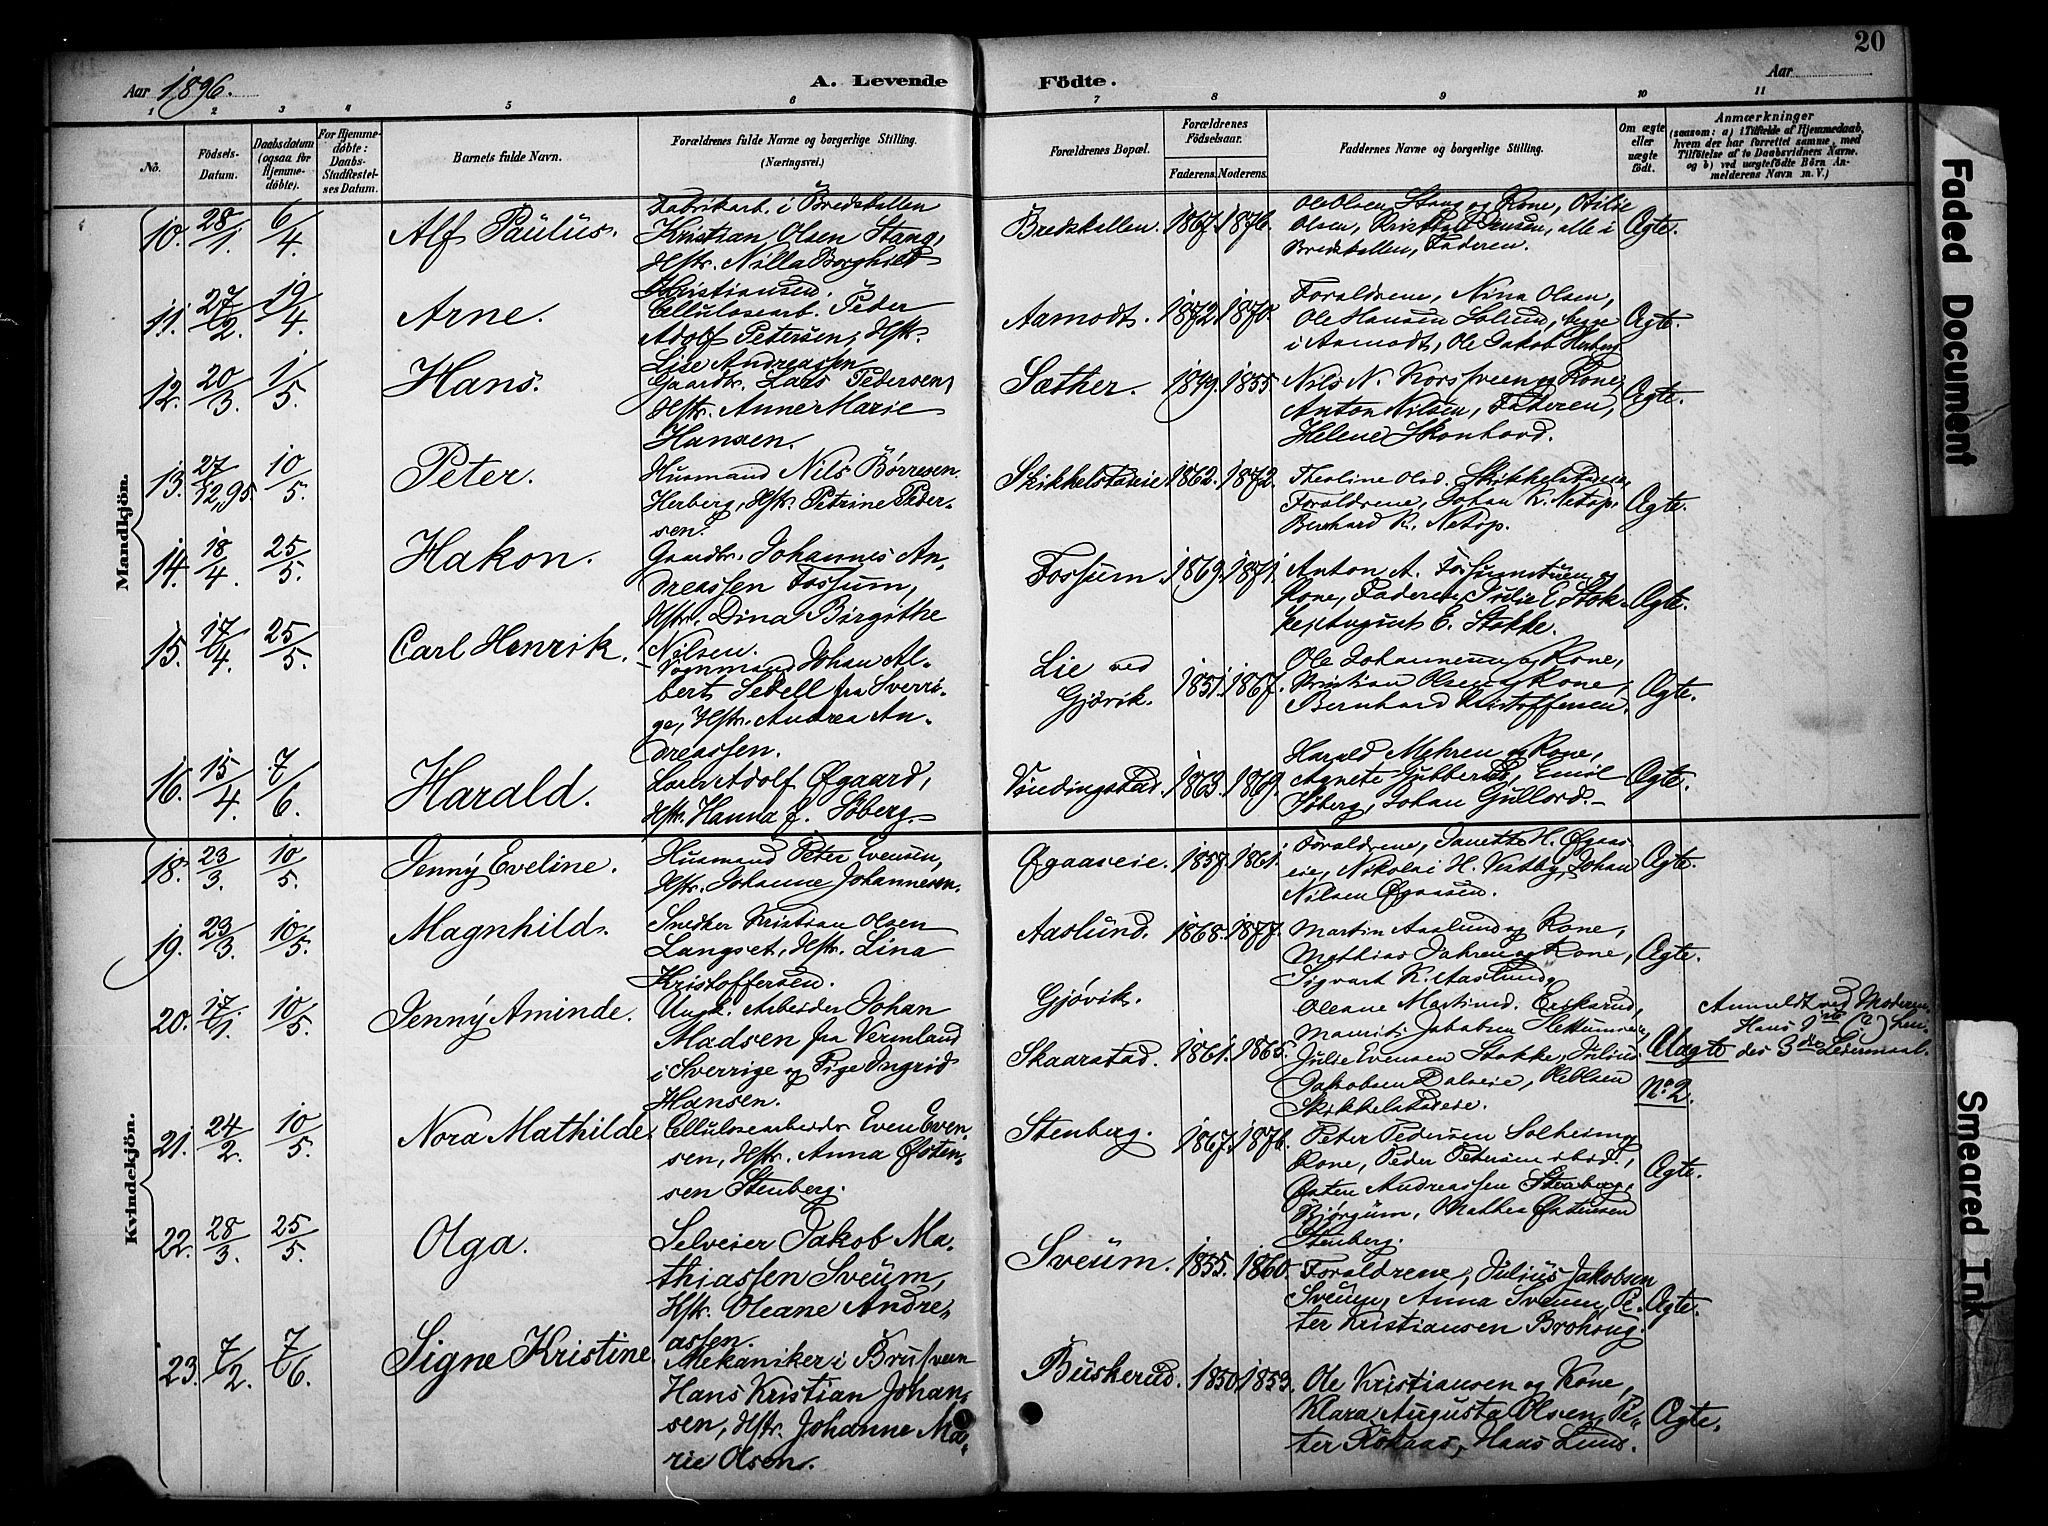 20
Aar 1896.
A. Levende Födte.
Aar
1 2 3 4 5 6 7 8 9 10 11
No.
Födsels-Datum.
Daabsdatum (ogsaa for Hjemmedöbte).
For Hjemmedöbte: Daabs-Stadfæstelses Datum.
Barnets fulde Navn.
Forældrenes fulde Navne og borgerlige Stilling.
(Næringsvei.)
Forældrenes Bopæl.
Forældrenes Födselsaar.
Faderens. Moderens.
Faddernes Navne og borgerlige Stilling.
Om ægte eller uægte født.
Anmærkninger
(saasom: a) i Tilfælde af Hjemmedaab, hvem der har forrettet samme, med Tilföielse af to Daabsvidners Navne. og b) ved uægtefödte Börn Anmelderens Navn m. V.)
Mandkjön.
10. 28/1 6/4 Alf Paulus.
Fabrikarb. i Bredskallen
Kristian Olsen Stang,
Hstr. Nilla Borghild
Kristiansen.
Bredskallen. 1867. 1876.
Ole Olsen Stang og Kone, Otilie
Olsen, Jensen, alle i
Bredskallen, Faderen.
Ægte.
11. 27/2 19/4 Arne.
Cellulosearb. Peder
Adolf Petersen, Hstr.
Lise Andreassen
Aamodt. 1872. 1870.
Forældrene, Nina Olsen,
Ole Hansen Solund, begge
i Aamodt, Ole Jakob Herberg
Ægte.
12. 20/3 1/5 Hans.
Gaardbr. Lars Pedersen,
Hstr. Anne Marie
Hansen.
Sæther. 1849. 1855.
Nils N. Korsveen og Kone,
Anton Nilsen, Faderen,
Helene Skonhord.
Ægte.
13. 27/12,95 10/5 Peter.
Husmand Nils Börresen
Herberg, Hstr. Petrine Peder-
sen.
Skikkelstadeie 1862. 1872.
Theoline Olsd. Skikkelstadeie
Forældrene, Johan K. Netop,
Bernhard K. Netop.
Ægte.
14. 18/4 25/5 Hakon.
Gaardbr. Johannes An-
dreassen Fossum,
Hstr. Dina Birgithe
Nilsen.
Fossum. 1869. 1871.
Anton A. Fossumstuen og
Kone, Faderen, Julie E. Stok-
ke, August E. Stokke.
Ægte.
15. 17/4 25/5 Carl Henrik.
Vognmand Johan Al-
bert Sedell fra Sverri-
ge, Hstr. Andrea An-
dreassen.
Lie ved
Gjøvik. 1851. 1867.
Ole Johannesen og Kone,
Kristian Olsen og Kone,
Bernhard Kristoffersen.
Ægte.
16. 15/4 7/6 Harald.
Carl Adolf Øgaard,
Hstr. Hanna f. Söberg.
Vindingstad. 1863. 1869.
Harald Mehren og Kone,
Agnete Gubberud, Emil
Söberg, Johan Gullord.
Ægte.
Kvindekjön.
18. 23/3 10/5 Jenny Eveline.
Husmand Peter Evensen,
Hstr. Johanne Johannesen.
Øgaaseie. 1857. 1861.
Forældrene, Janette H. Øgaas-
eie, Nikolai H. Vestby, Johan
Nilsen Øgaasen.
Ægte.
19. 23/3 10/5 Magnhild.
Snedker Kristian Olsen
Langset, Hstr. Lina
Kristoffersen.
Aaslund. 1868. 1877.
Martin Aaslund og Kone,
Mathias Jahren og Kone,
Sigvart K. Aaslund.
Ægte.
20. 17/1 10/5 Jenny Aminde.
Ungk. Arbeider Johan
Madsen fra Vermland
i Sverrige og Pige Ingrid
Hansen.
Gjøvik.
Skaarstad. 1861. 1865.
Oleane Martinsd. Eriksrud,
Maurits Jakobsen
Julie Evensen Stokke, Julius
Jakobsen Dalseie,
Skikkelstadeie.
Uægte
No 2.
Anmeldt ved Moderen.
Hans 1ste (?)
des 3die Leiermaal.
21. 24/2 10/5 Nora Mathilde.
Cellulosearbeider Even Even-
sen, Hstr. Anna Østen-
sen Stenberg.
Stenberg. 1867. 1876.
Peter Pedersen Solheim og
Kone, Peder Petersen ibid.,
Østen Andreassen Stenberg,
Bjørgum, Mathea Østensen
Stenberg.
Ægte.
22. 28/3 25/5 Olga.
Selveier Jakob Ma-
thiassen Sveum,
Hstr. Oleane Andre-
assen.
Sveum. 1855. 1860.
Forældrene, Julius Jakobsen
Sveum, Anna Sveum, Pe-
ter Kristiansen Brohoug.
Ægte.
23. 7/2 7/6 Signe Kristine.
Mekaniker i Brufveen
Hans Kristian Johan-
sen, Hstr. Johanne Ma-
rie Olsen.
Buskerud. 1850 1853.
Ole Kristiansen og Kone,
Klara Augusta Olsen, Pe-
ter Rokaas, Hans Lund.
Ægte.
Faded Document
Smeared Ink